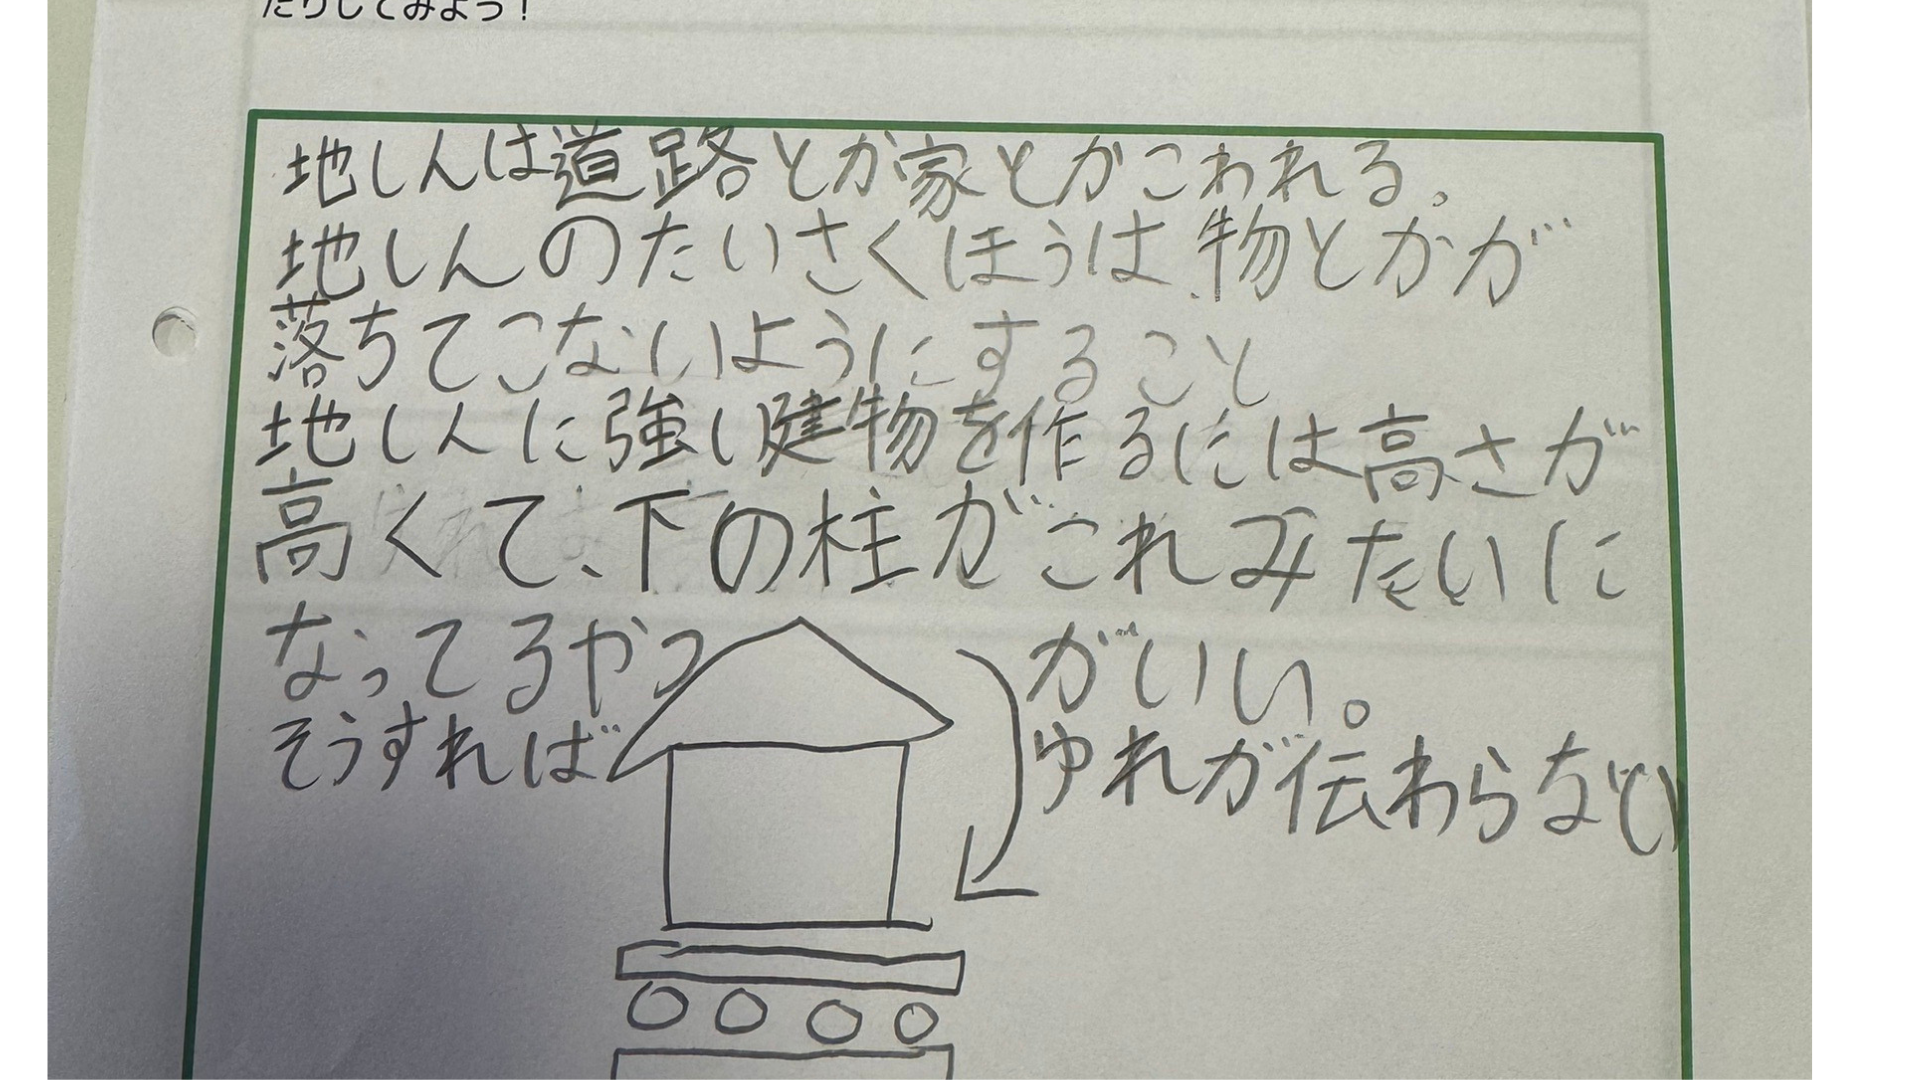 たりしてみよう！
地しんは道路とか家とかこわれる。
地しんのたいさくほうは物とかが
落ちてこないようにすること
地しんに強い建物を作るには高さが
高くて、下の柱がこれみたいに
なってるやつがいい。
そうすればゆれが伝わらない